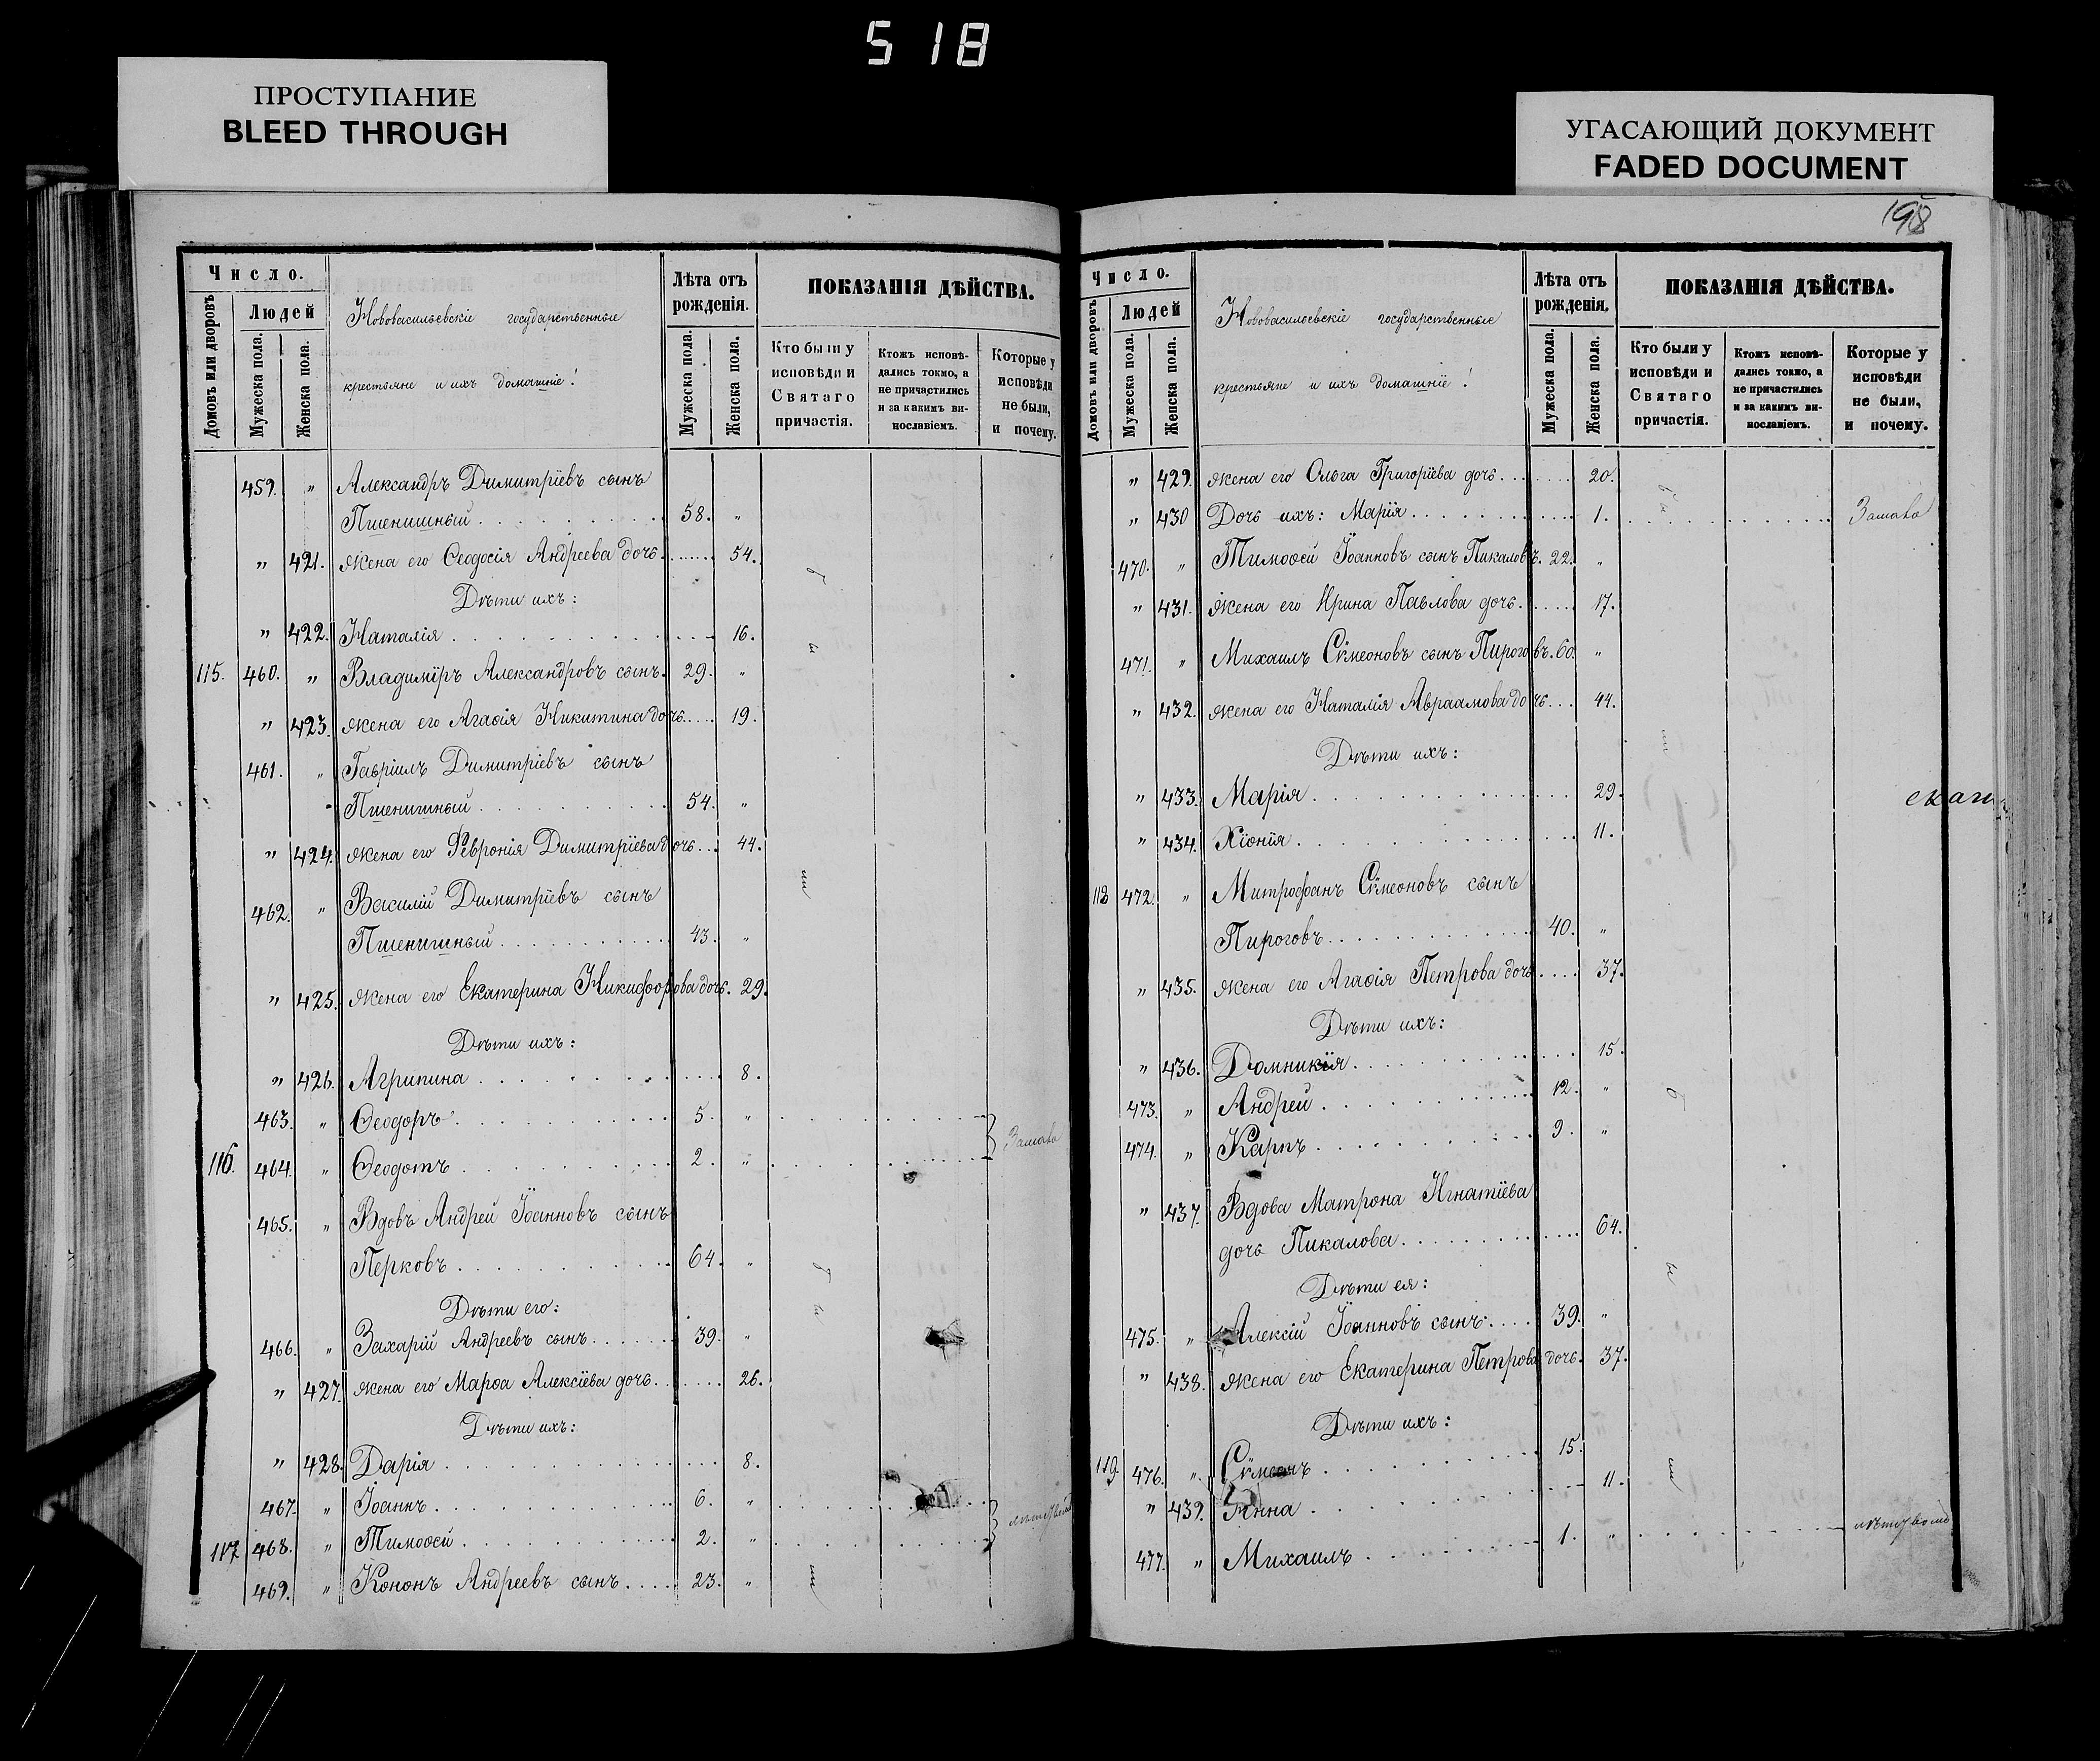 518
ПРОСТУПАНИЕ
BLEED THROUGH
УГАСАЮЩИЙ ДОКУМЕНТ
FADED DOCUMENT
198
Число.
Домовъ или дворовъ
Людей
Мужеска пола.
Женска пола.
Нововасильевскіе государственные
крестьяне и ихъ домашніе:
Лѣта отъ рожденія.
Мужеска пола.
Женска пола.
ПОКАЗАНІЯ ДѢЙСТВА.
Кто были у исповѣди и Святаго причастія.
Ктожъ исповѣдались токмо, а не причастились и за какимъ винословіемъ.
Которые у исповѣди не были, и почему.
459. " Александръ Димитріевъ сынъ
Пшенишный . . . 58. "
" 421. жена его Ѳеодосія Андреева дочь . . . 54.
Дѣти ихъ:
" 422. Наталія . . . 16.
115. 460. " Владиміръ Александровъ сынъ. 29. "
" 423. жена его Агаѳія Никитина дочь . . . 19.
461. " Гавріилъ Димитріевъ сынъ
Пшенишный . . . 54. "
" 424. жена его Февронія Димитріева дочь . . . 44.
462. " Василій Димитріевъ сынъ
Пшенишный . . . 43. "
" 425. жена его Екатерина Никифорова дочь. 29.
Дѣти ихъ:
" 426. Агрипина . . . 8.
463. " Ѳеодоръ . . . 5. "
116. 464. " Ѳеодотъ . . . 2. "
465. " Вдовъ Андрей Іоанновъ сынъ
Перковъ . . . 64. "
Дѣти его:
466. " Захарій Андреевъ сынъ . . . 39. "
" 427. жена его Марѳа Алексіева дочь . . . 26.
Дѣти ихъ:
" 428. Дарія . . . 8.
467. " Іоаннъ . . . 6. "
117 468. " Тимоѳей . . . 2. "
469. " Кононъ Андреевъ сынъ . . . 23. "
Число.
Домовъ или дворовъ
Людей
Мужеска пола.
Женска пола.
Нововасильевскіе государственные
крестьяне и ихъ домашніе:
Лѣта отъ рожденія.
Мужеска пола.
Женска пола.
ПОКАЗАНІЯ ДѢЙСТВА.
Кто были у исповѣди и Святаго причастія.
Ктожъ исповѣдались токмо, а не причастились и за какимъ винословіемъ.
Которые у исповѣди не были, и почему.
" 429. жена его Ольга Григоріева дочь . . . 20.
" 430 Дочь ихъ: Марія . . . 1.
470. " Тимоѳей Іоанновъ сынъ Пикаловъ. 22. "
" 431. жена его Ирина Павлова дочь . . . 17.
471. " Михаилъ Сѵмеоновъ сынъ Пироговъ. 60. "
" 432. жена его Наталія Авраамова дочь . . . 44.
Дѣти ихъ:
" 433. Марія . . . 29.
" 434. Хіонія . . . 11.
118 472. " Митрофанъ Сѵмеоновъ сынъ
Пироговъ . . . 40. "
" 435. жена его Агаѳія Петрова дочь . . . 37.
Дѣти ихъ:
" 436. Домникія . . . 15.
473. " Андрей . . . 12. "
474. " Карпъ . . . 9. "
" 437. Вдова Матрона Игнатіева
дочь Пикалова . . . 64.
Дѣти ея:
475. " Алексій Іоанновъ сынъ . . . 39. "
" 438. жена его Екатерина Петрова дочь. 37.
Дѣти ихъ:
119. 476. " Сѵмеонъ . . . 15.
" 439. Анна . . . 11.
477. " Михаилъ . . . 1. "